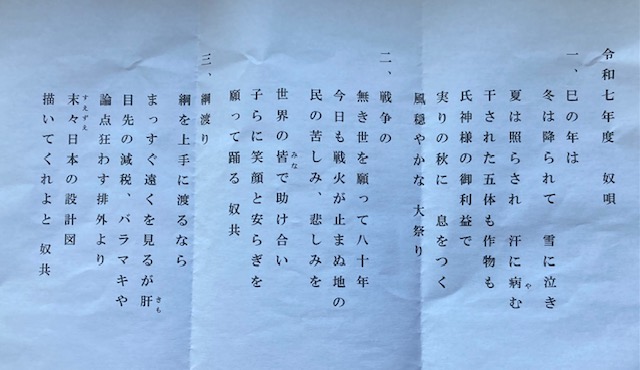 令和七年度　奴唄
一、巳の年は
冬は降られて　雪に泣き
夏は照らされ　汗に病む
や
干された五体も作物も
氏神様の御利益で
実りの秋に　息をつく
風穏やかな　大祭り
二、戦争の
無き世を願って八十年
今日も戦火が止まぬ地の
民の苦しみ、悲しみを
世界の皆で助け合い
みな
子らに笑顔と安らぎを
願って踊る　奴共
三、綱渡り
綱を上手に渡るなら
まっすぐ遠くを見るが肝
きも
目先の減税、バラマキや
論点狂わす排外より
末々日本の設計図
すえずえ
描いてくれよと　奴共